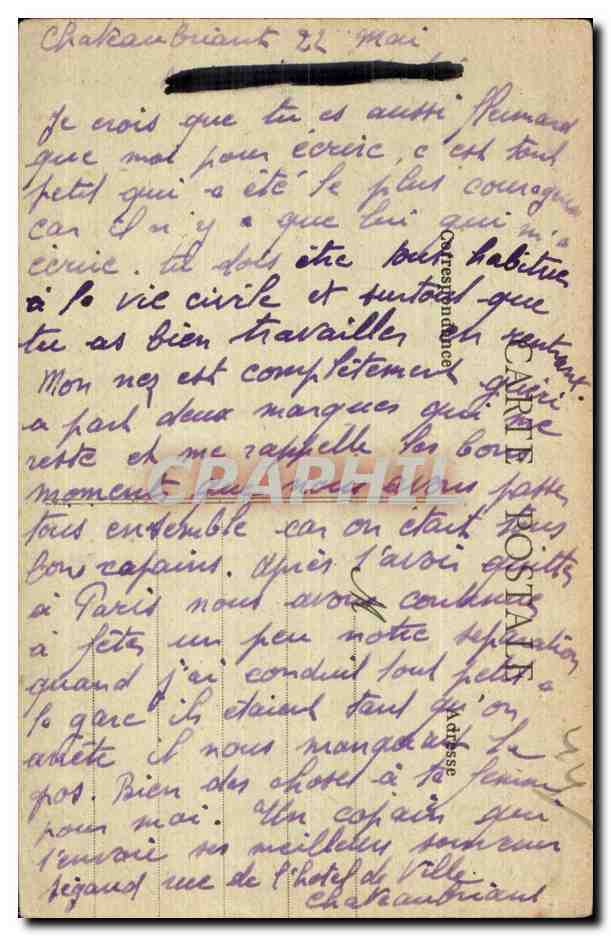 Chateaubriant 22 Mai
Je crois que tu es aussi flemard
que moi pour écrire, c'est tout
petit qui a été le plus courageux
car il n'y a que lui qui m'a
écrire. tu dois être bien habituer
à la vie civile et surtout que
tu as bien travailler en rentrant.
Mon nez est complètement guéri
a part deux marques qui me
reste et me rappelle les bon
moment que nous avons passer
tous ensemble car on était tous
bon copains. Après t'avoir quitter
à Paris nous avons continuer
à fêter un peu notre séparation
quand j'ai conduit tout petit a
la gare ils étaient tard qu'on
arrête il nous manquait
pas. Bien des choses à ta femme
pour moi. Un copain qui
t'envoie ses meilleurs souvenir
Ségaud rue de l'hotel de Ville
Chateaubriant
Correspondance
CARTE POSTALE
M
Adresse
CPAPHIL